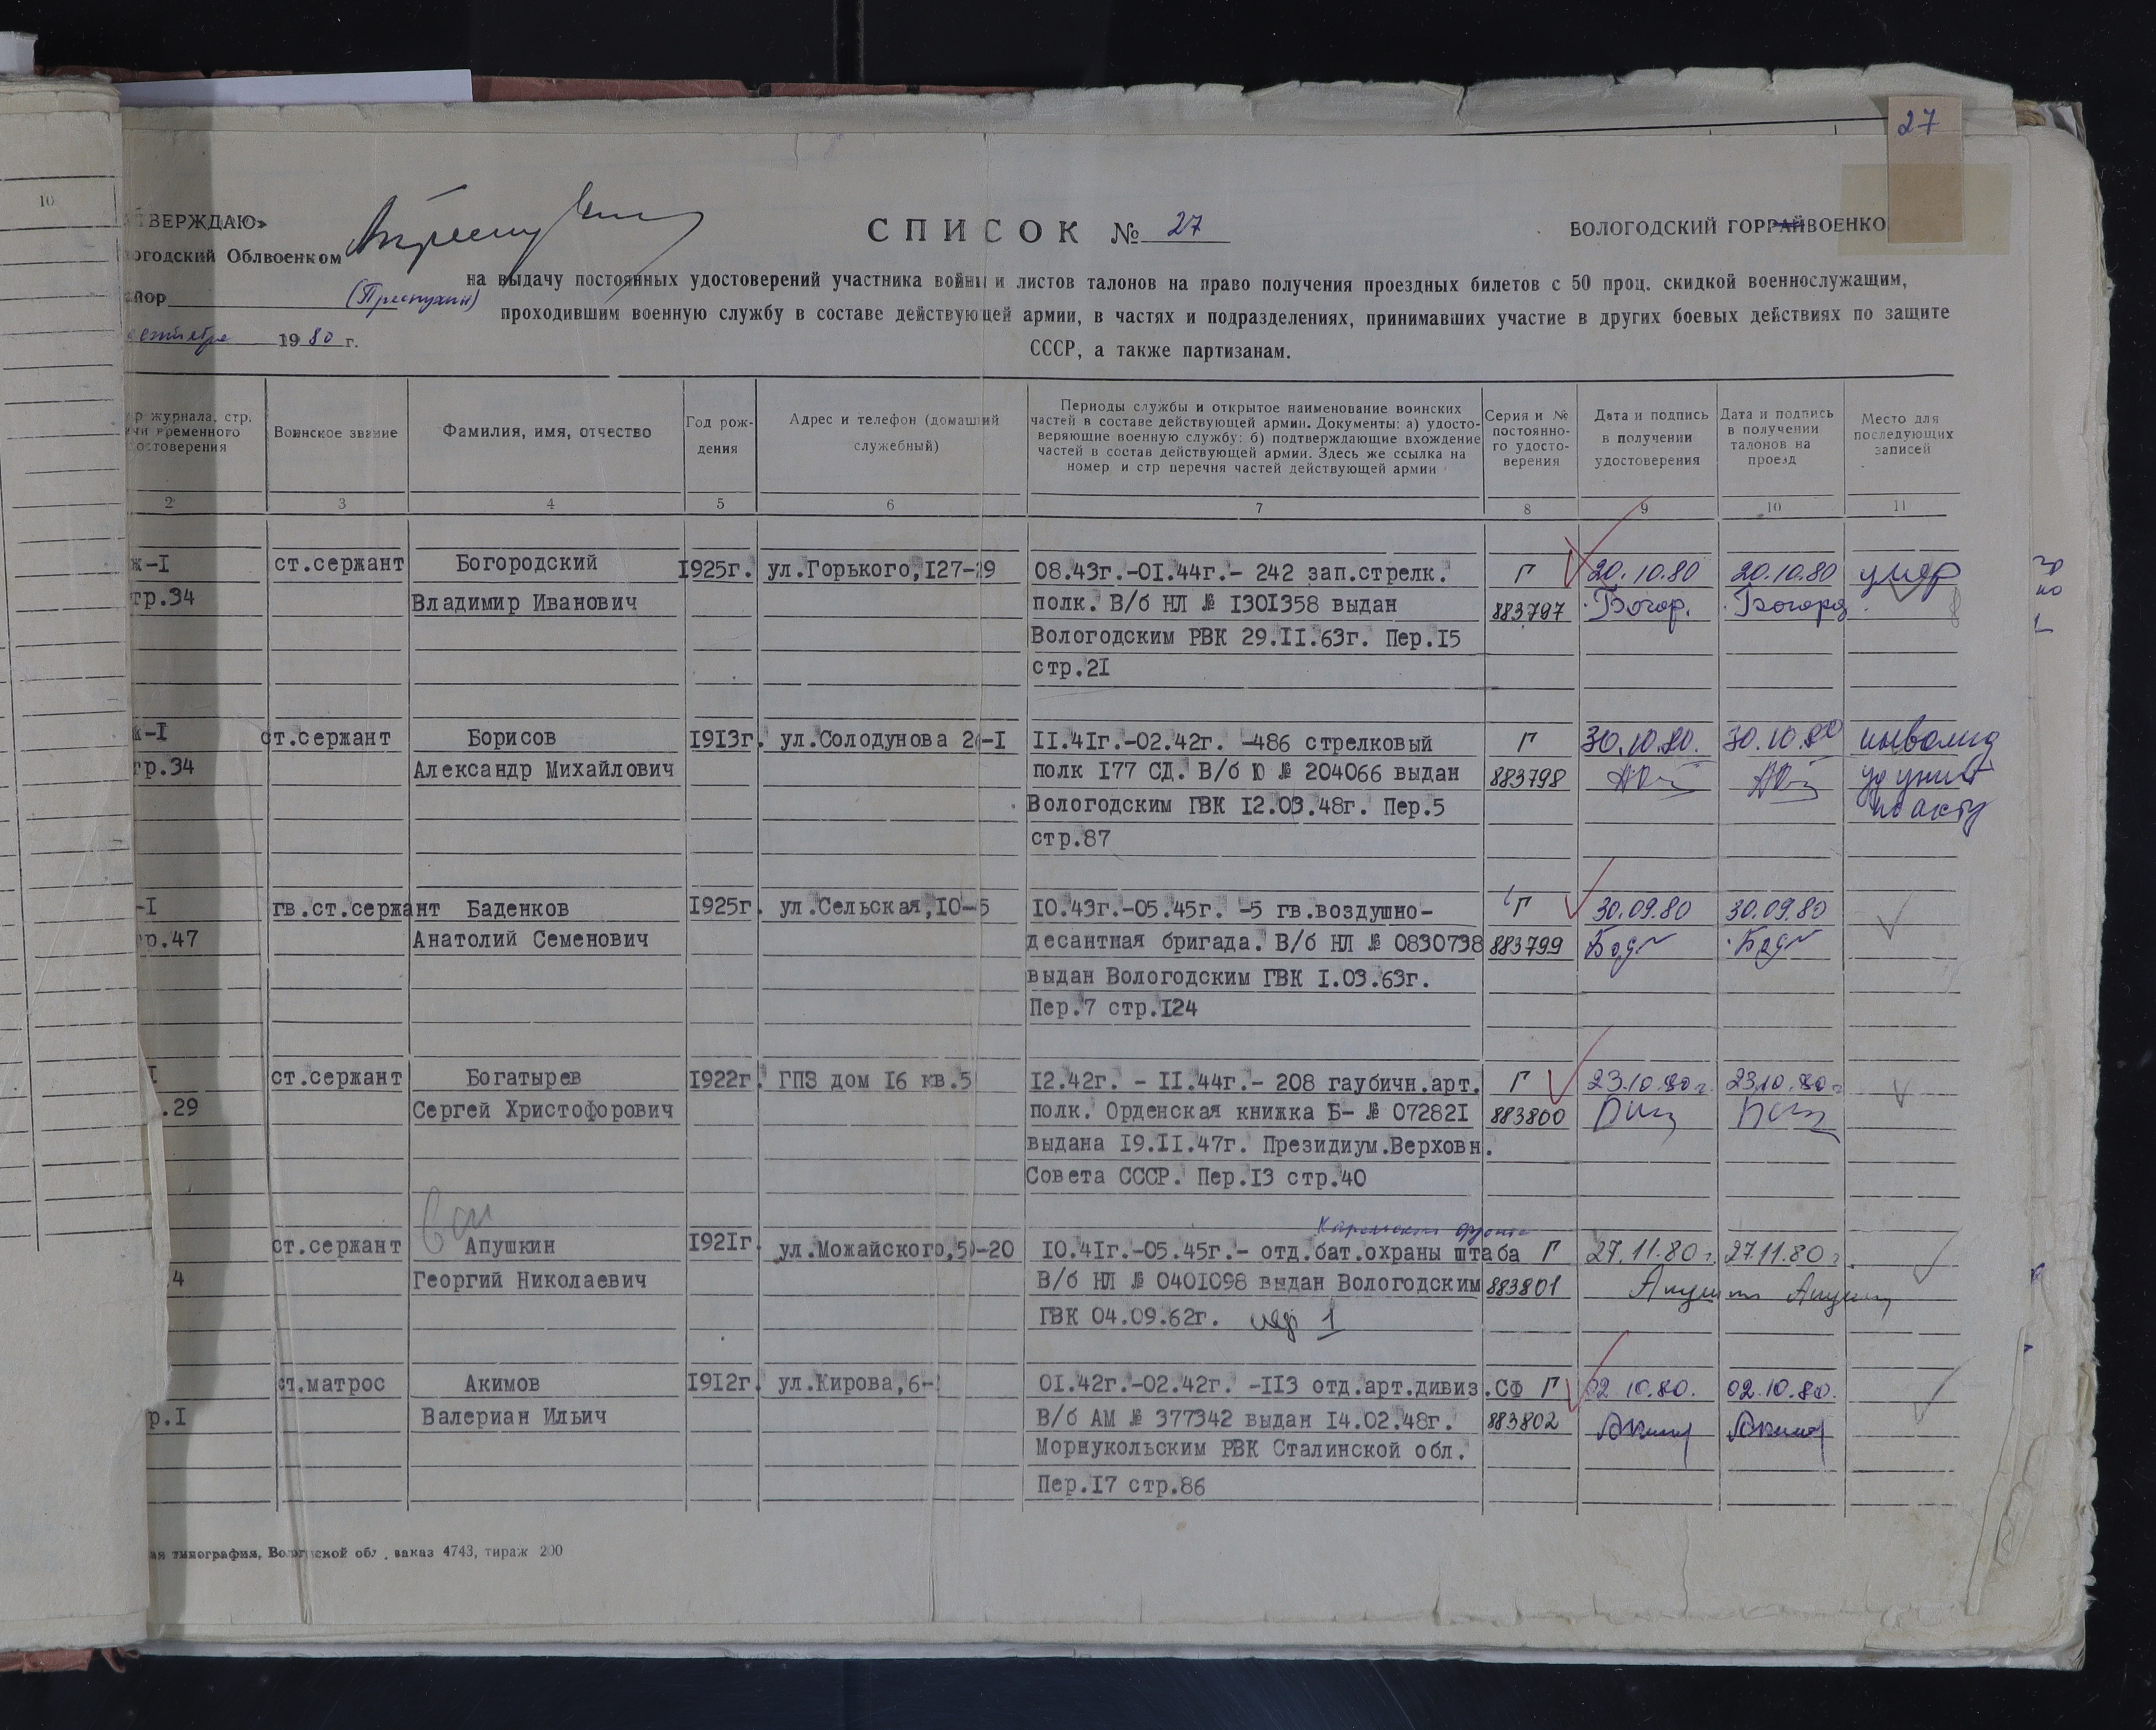 10
27
ТВЕРЖДАЮ»
огодский Облвоенком
(Преснухин)
19 80 г.
СПИСОК № 27
ВОЛОГОДСКИЙ ГОРРАЙВОЕНКО
на выдачу постоянных удостоверений участника войны и листов талонов на право получения проездных билетов с 50 проц. скидкой военнослужащим,
проходившим военную службу в составе действующей армии, в частях и подразделениях, принимавших участие в других боевых действиях по защите
СССР, а также партизанам.
р журнала, стр.
чи временного
остоверения
Воинское звание
Фамилия, имя, отчество
Год рож-
дения
Адрес и телефон (домашний
служебный)
Периоды службы и открытое наименование воинских
частей в составе действующей армии. Документы: а) удосто-
веряющие военную службу; б) подтверждающие вхождение
частей в состав действующей армии. Здесь же ссылка на
номер и стр перечня частей действующей армии
Серия и №
постоянно-
го удосто-
верения
Дата и подпись
в получении
удостоверения
Дата и подпись
в получении
талонов на
проезд
Место для
последующих
записей
2 3 4 5 6 7 8 9 10 11
ж-I ст.сержант Богородский 1925г. ул.Горького,127-29 08.43г.-01.44г.- 242 зап.стрелк. Г 20.10.80 20.10.80 умер
тр.34 Владимир Иванович полк. В/б НЛ № 1301358 выдан 883797 Богор. Богород
Вологодским РВК 29.11.63г. Пер.15
стр.21
ж-I ст.сержант Борисов 1913г. ул.Солодунова 2 -1 11.41г.-02.42г. -486 стрелковый Г 30.10.80. 30.10.80 инвалид
тр.34 Александр Михайлович полк 177 СД. В/б Ю № 204066 выдан 883798 уд унич
Вологодским ГВК 12.03.48г. Пер.5 по акту
стр.87
-I гв.ст.сержант Баденков 1925г. ул.Сельская,10-5 10.43г.-05.45г. -5 гв.воздушно- Г 30.09.80 30.09.80
р.47 Анатолий Семенович десантная бригада. В/б НЛ № 0830738 883799
выдан Вологодским ГВК 1.03.63г.
Пер.7 стр.124
I ст.сержант Богатырев 1922г. ГПЗ дом 16 кв.5 12.42г. - 11.44г.- 208 гаубичн.арт. Г 23.10.80г. 23.10.80г
.29 Сергей Христофорович полк. Орденская книжка Б- № 072821 883800
выдана 19.11.47г. Президиум.Верховн.
Совета СССР. Пер.13 стр.40
Карельского фронта
ст.сержант Апушкин 1921г. ул.Можайского,5 -20 10.41г.-05.45г.- отд.бат.охраны штаба Г 27.11.80г. 27.11.80г.
4 Георгий Николаевич В/б НЛ № 0401098 выдан Вологодским 883801
ГВК 04.09.62г. пер 1
ст.матрос Акимов 1912г. ул.Кирова,6- 01.42г.-02.42г. -113 отд.арт.дивиз.СФ Г 02.10.80. 02.10.80.
р.I Валериан Ильич В/б АМ № 377342 выдан 14.02.48г. 883802 Аким Аким
Морнукольским РВК Сталинской обл.
Пер.17 стр.86
ая типография, Вологодской обл., заказ 4743, тираж 200